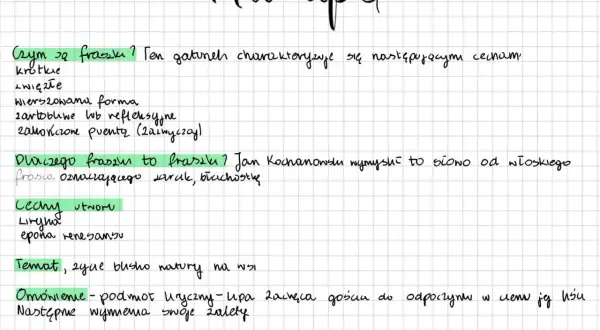 Czym są fraszki? Ten gatunek charakteryzuje się następującymi cechami
krótkie
zwięzłe
wierszowana forma
żartobliwe lub refleksyjne
zakończone puentą (zazwyczaj)
Dlaczego fraszki to fraszki? Jan Kochanowski wymyślił to słowo od włoskiego
frasca oznaczającego żarcik, błachostkę
Cechy utworu
Liryka
epoka renesansu
Temat, życie blisko natury na wsi
Omówienie - podmiot liryczny - lipa zachęca gościa do odpoczynku w cieniu jej liści
Następnie wymienia swoje zalety